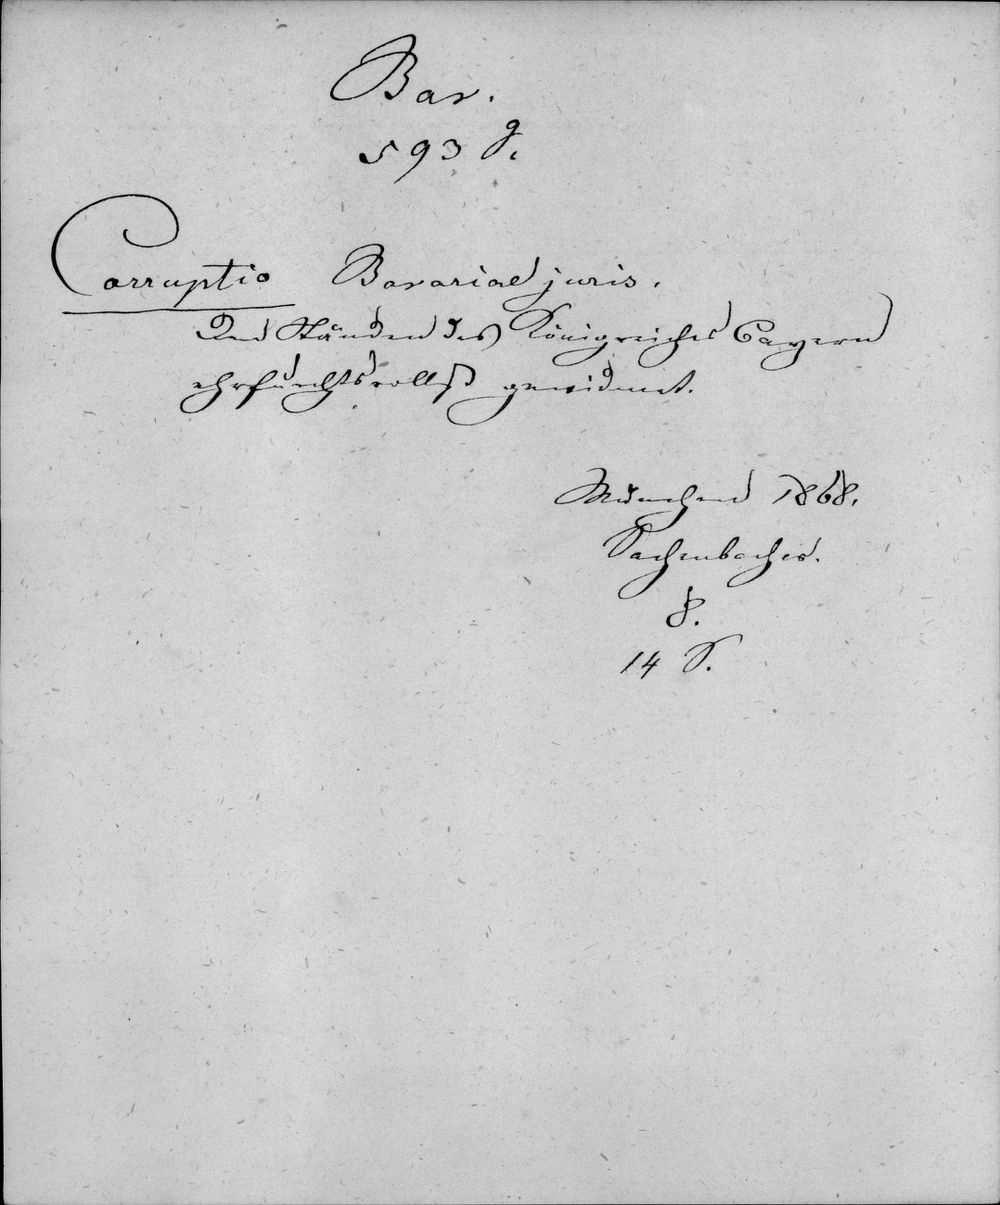 Bav.
593 g.
Corruptio Bavariae juris.
Den Ständen des Königreiches Bayern
ehrfurchtsvollst gewidmet.
München 1868.
Dachenbacher.
8.
14 S.